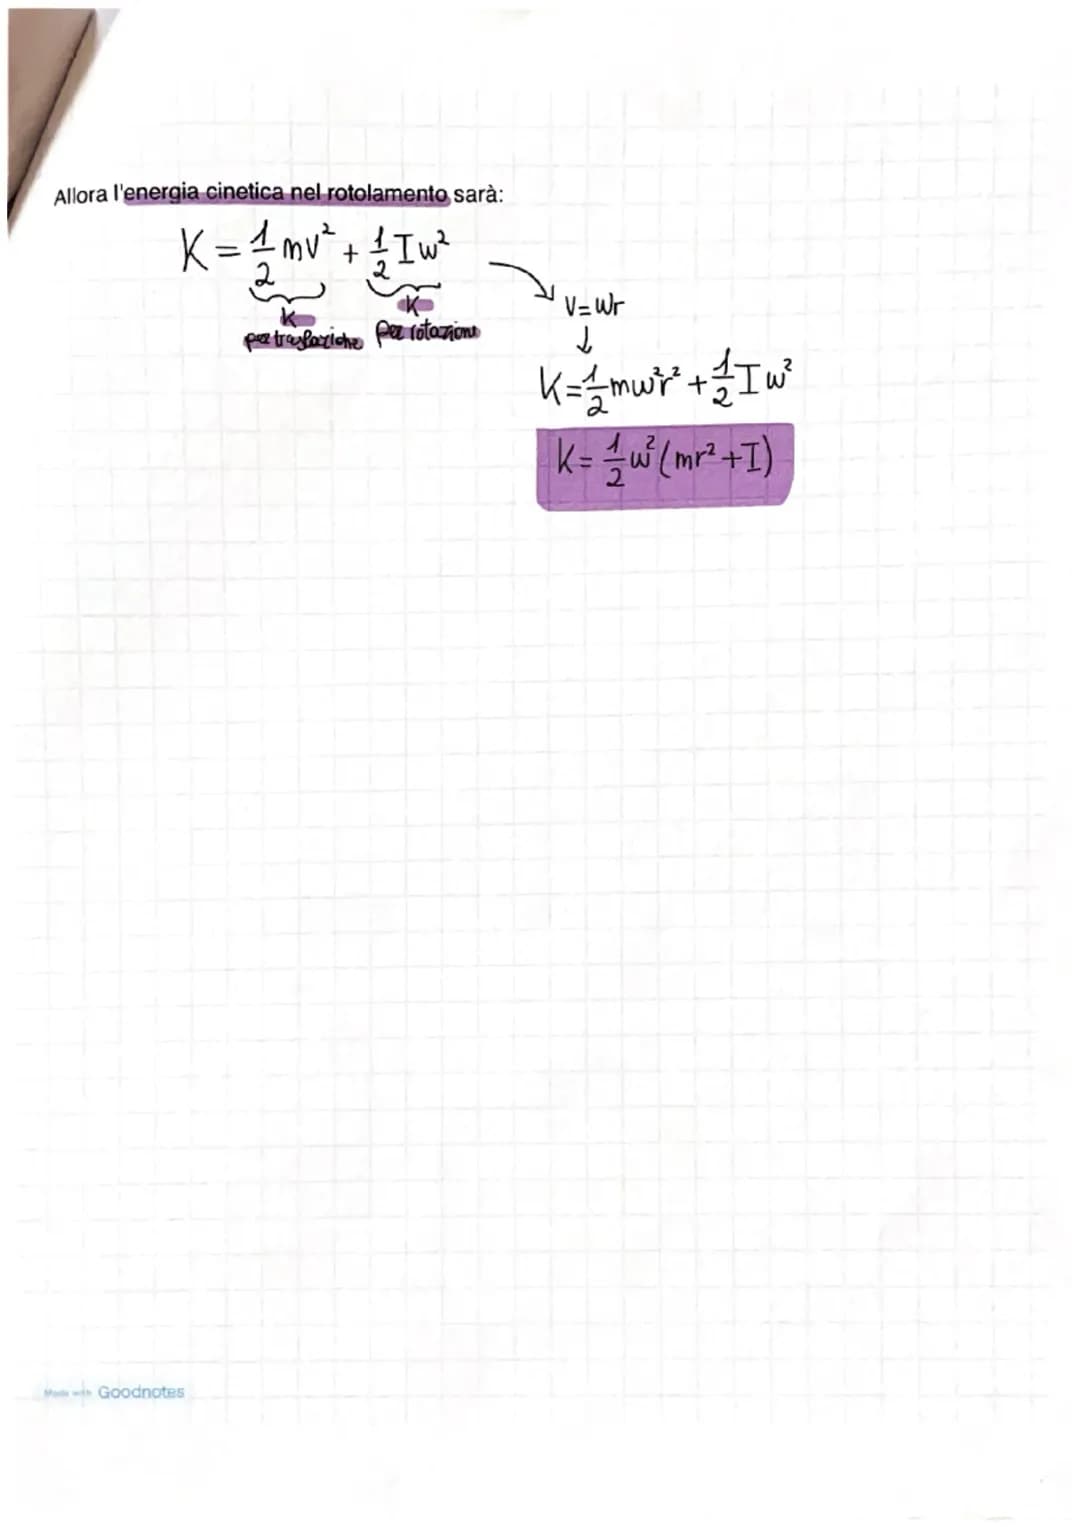 Allora l'energia cinetica nel rotolamento sarà:
K = 1/2 mv² + 1/2 Iw²
K K
per rotazione
v = wr
↓
K = 1/2 mw²r² + 1/2 I w²
K = 1/2 w² (mr² + I)
Made with Goodnotes